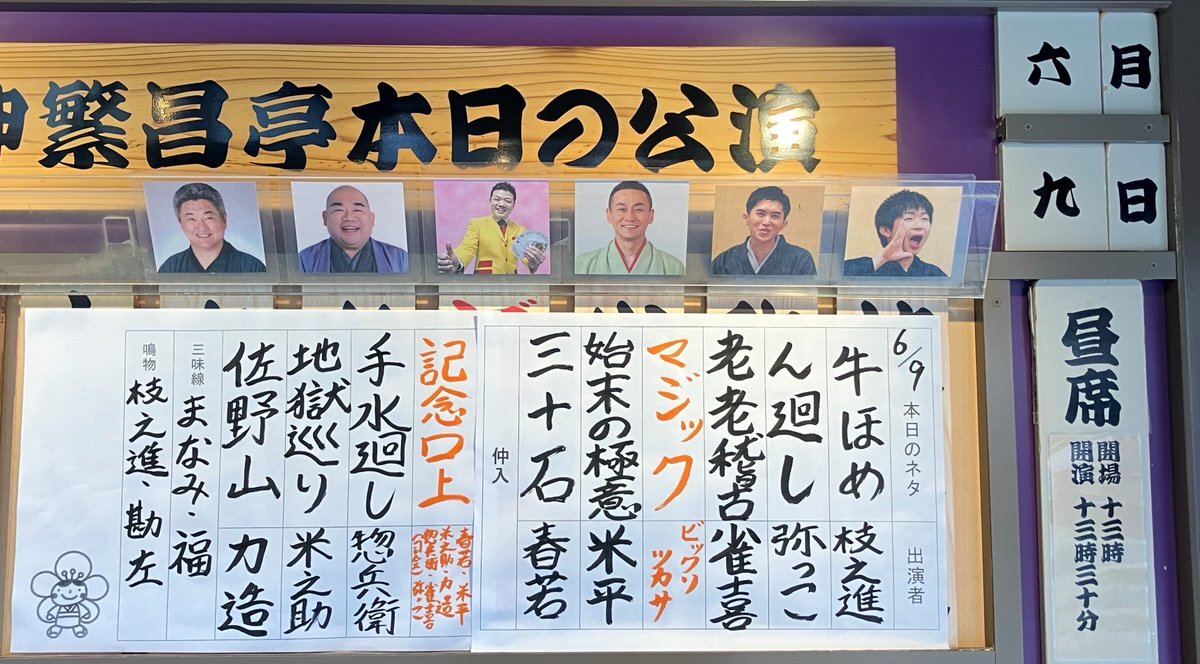 神繁昌亭本日の公演
六月
九日
昼席
開場 十三時
開演 十三時三十分
6/9 本日のネタ 出演者
牛ほめ 枝之進
ん廻し 弥っこ
老老稽古 雀喜
マジック ビックリツカサ
始末の極意 米平
三十石 春若
仲入
記念口上 春若 米平
米之助 力造
惣兵衛 雀喜
弥っこ
手水廻し 惣兵衛
地獄巡り 米之助
佐野山 力造
三味線 まなみ・福
鳴物 枝之進、勘左